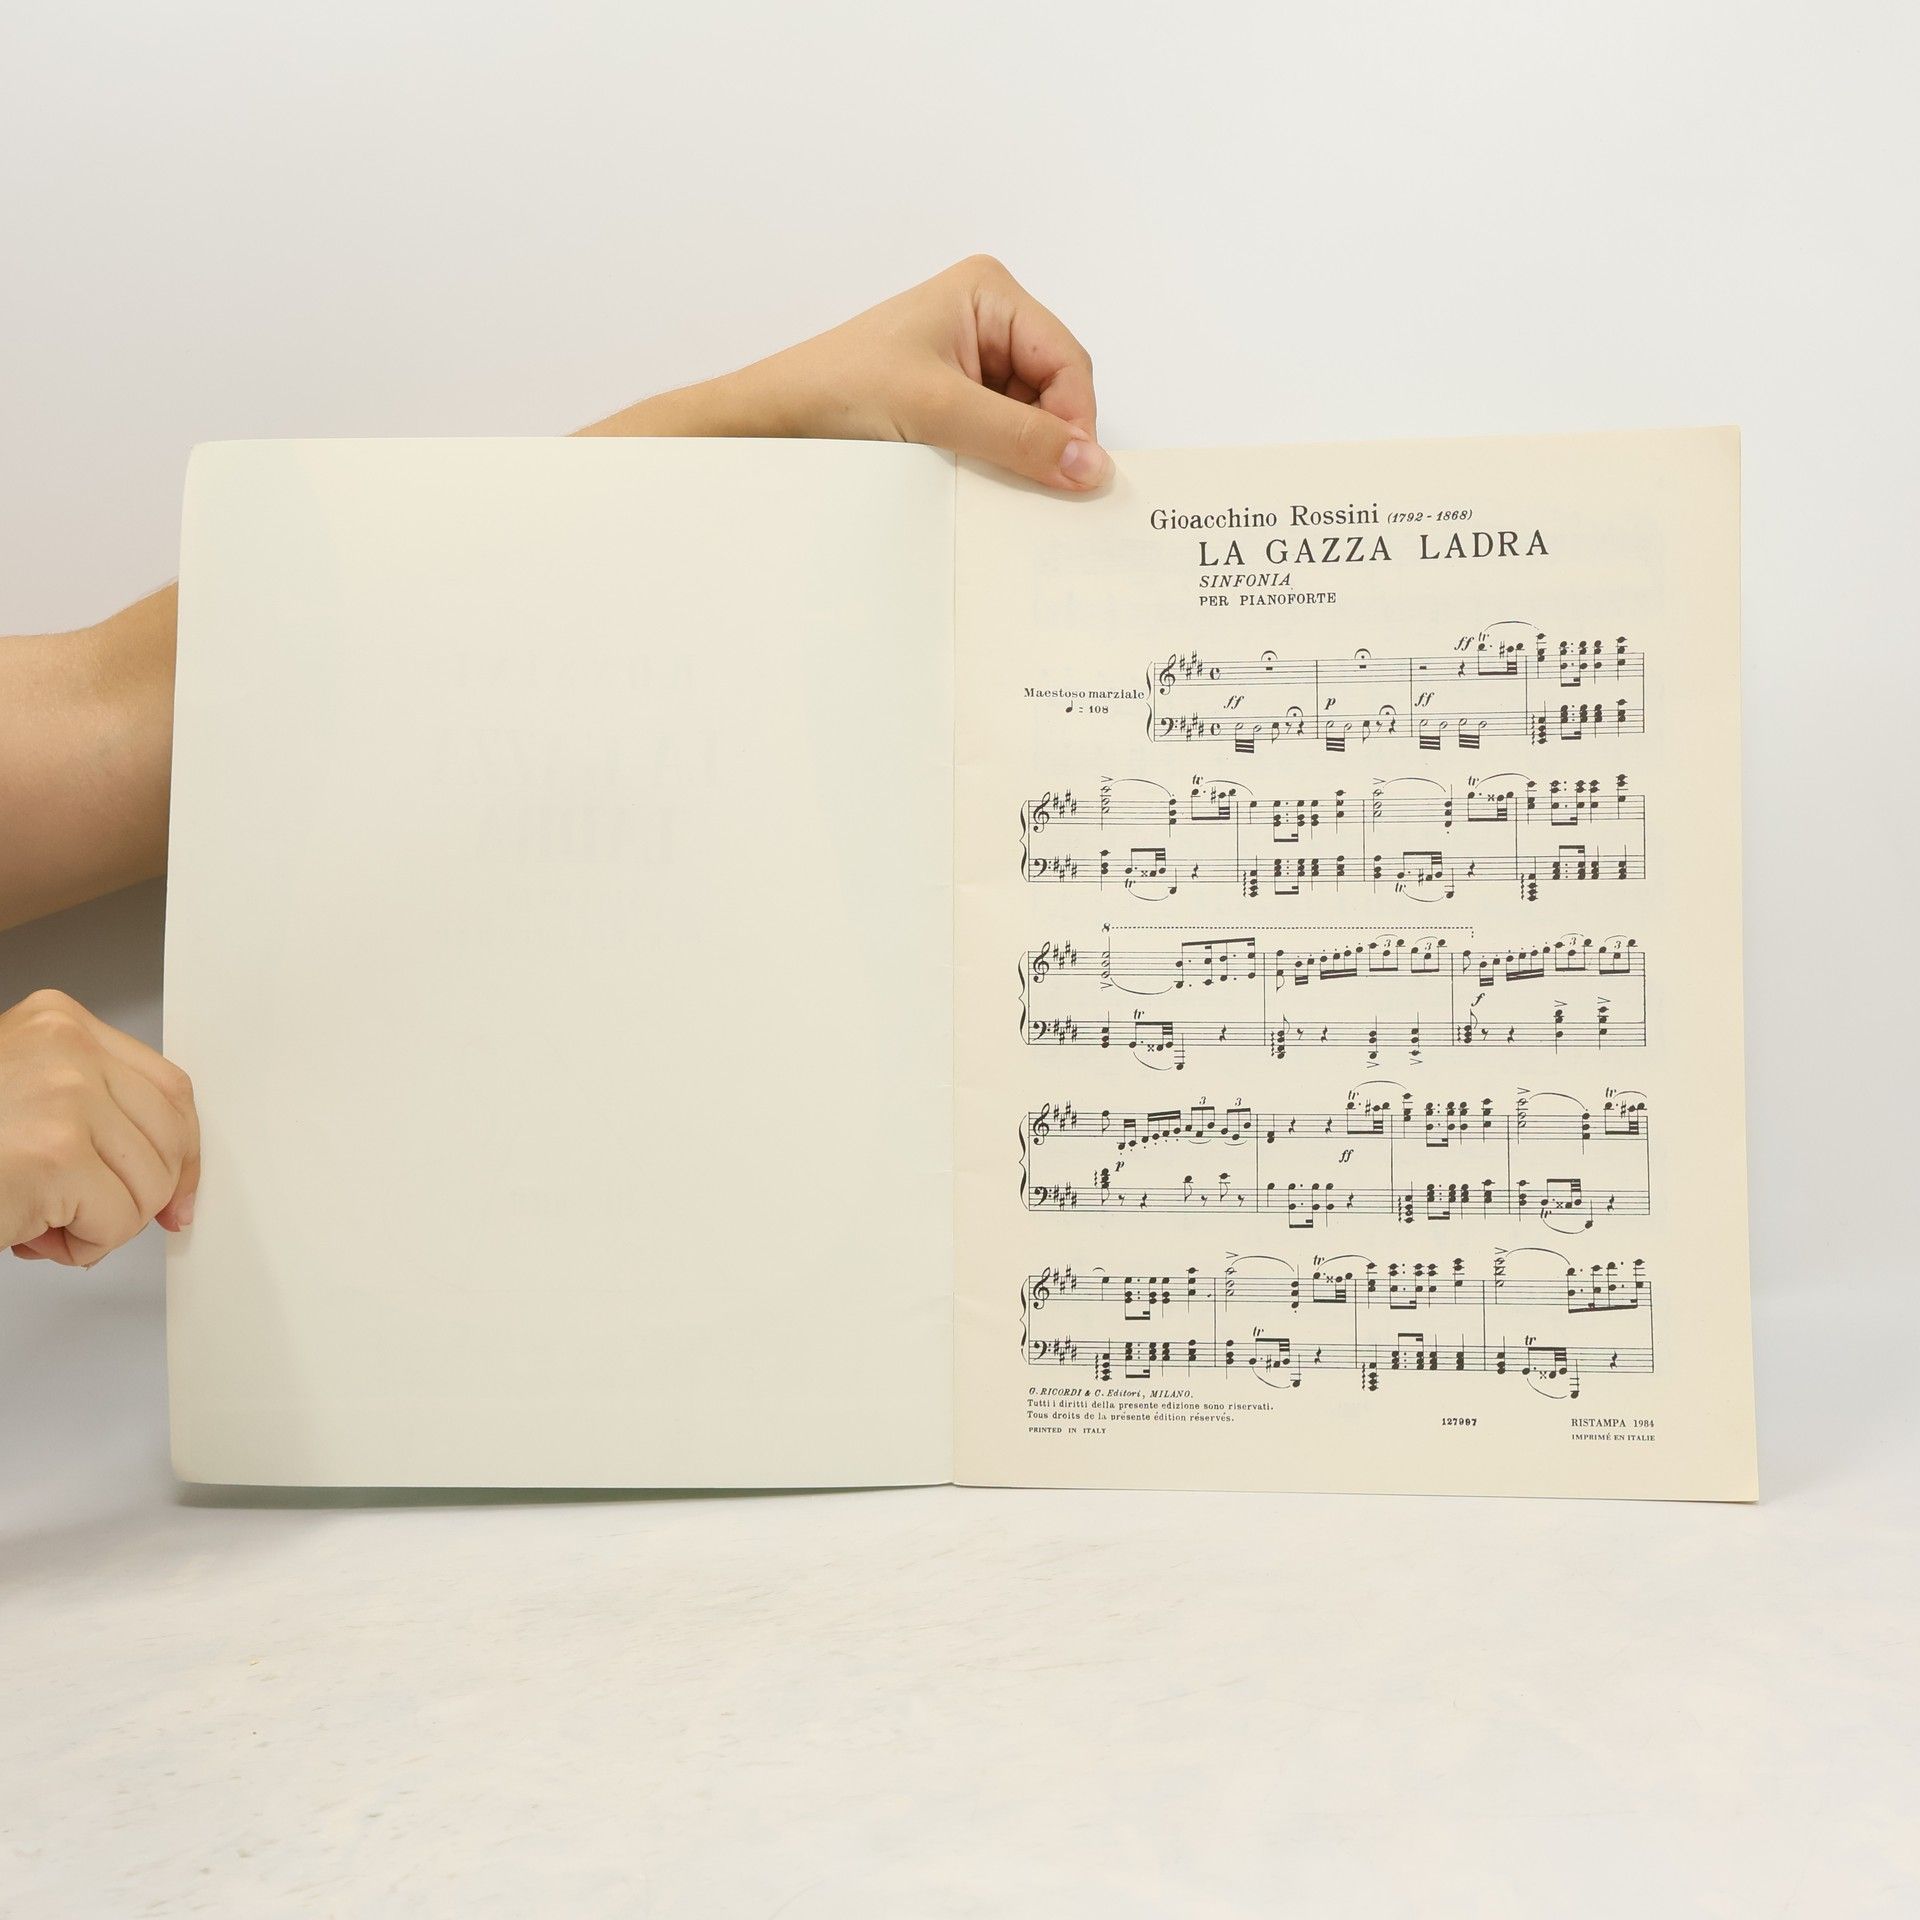 Gioacchino Rossini (1792 - 1868)
LA GAZZA LADRA
SINFONIA
PER PIANOFORTE
Maestoso marziale
♩ = 108
ff tr
ff p ff
tr tr
tr tr
8
3 3 3 3
tr
f
3 3 tr tr
p ff
tr
tr
tr tr
G. RICORDI & C. Editori, MILANO.
Tutti i diritti della presente edizione sono riservati.
Tous droits de la présente édition réservés.
PRINTED IN ITALY
127997
RISTAMPA 1984
IMPRIMÉ EN ITALIE